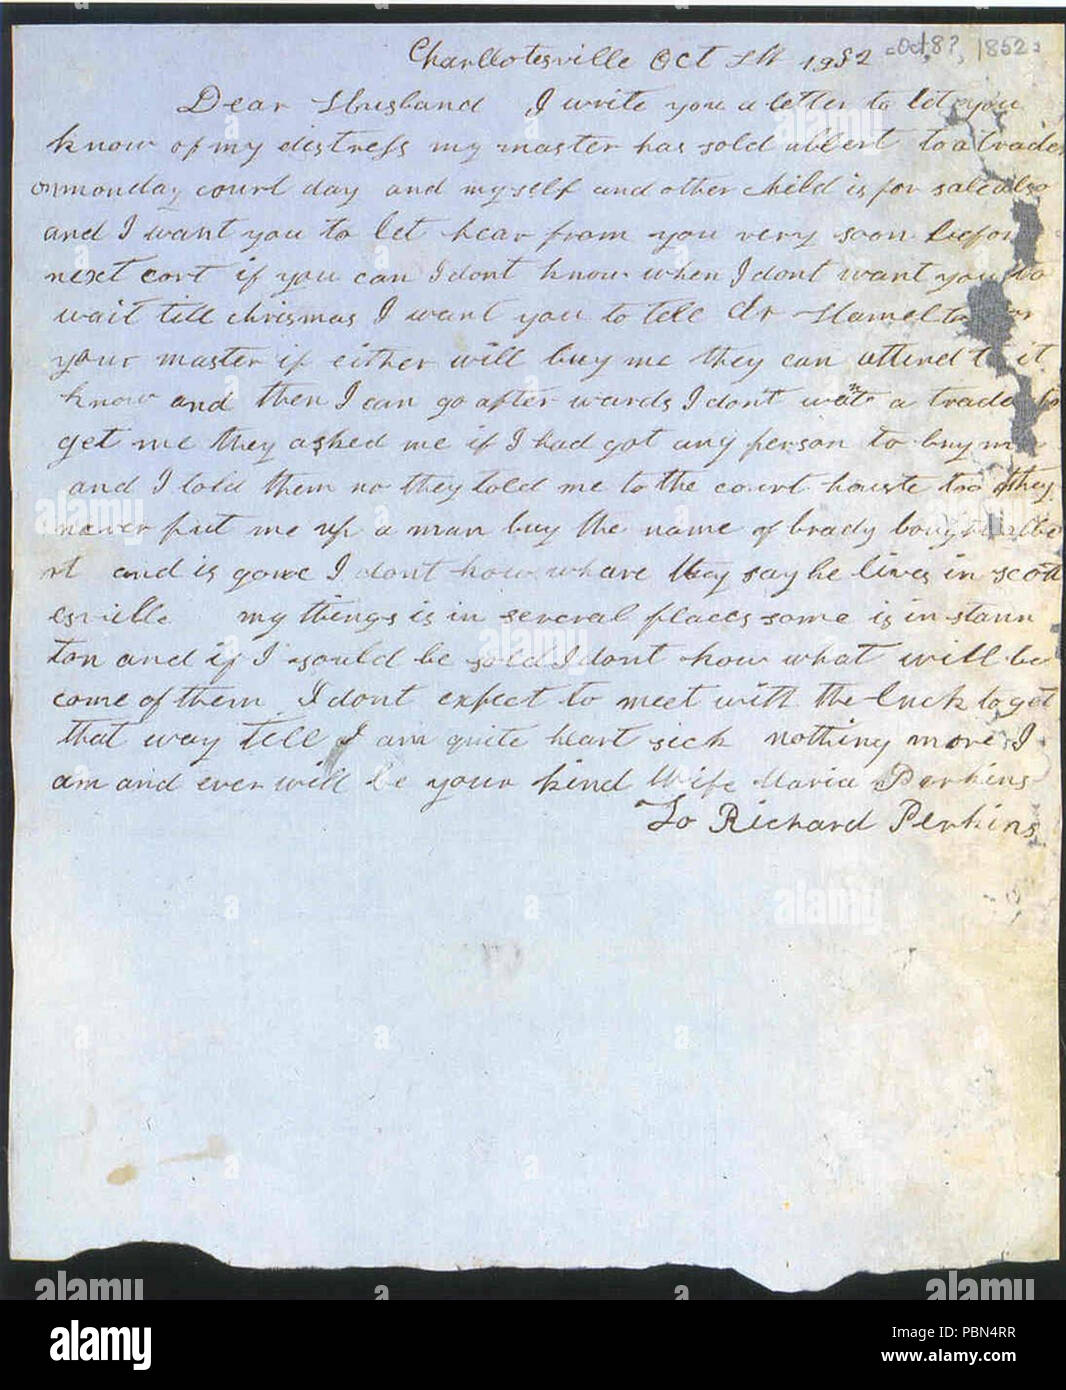 Charllotesville Oct 8th 1852 Oct 8?, 1852
Dear Husband I write you a letter to let you
know of my distress my master has sold albert to a trader
on monday court day and myself and other child is for sale also
and I want you to let hear from you very soon before
next cort if you can I dont know when I dont want you to
wait till chrismas I want you to tell dr Hamelton or
your master if either will buy me they can attend to it
know and then I can go after wards I dont want a trader to
get me they asked me if I had got any person to buy me
and I told them no they told me to the court houste too they
never put me up a man buy the name of brady bought albe
rt and is gone I dont know whare they say he lives in scott
esville my things is in several places some is in staun
ton and if I sould be sold I dont know what will be
come of them I dont expect to meet with the luck to get
that way till I am quite heart sick nothing more I
am and ever will be your kind Wife Maria Perkins
To Richard Perkins
alamy
Image ID: PBN4RR
www.alamy.com